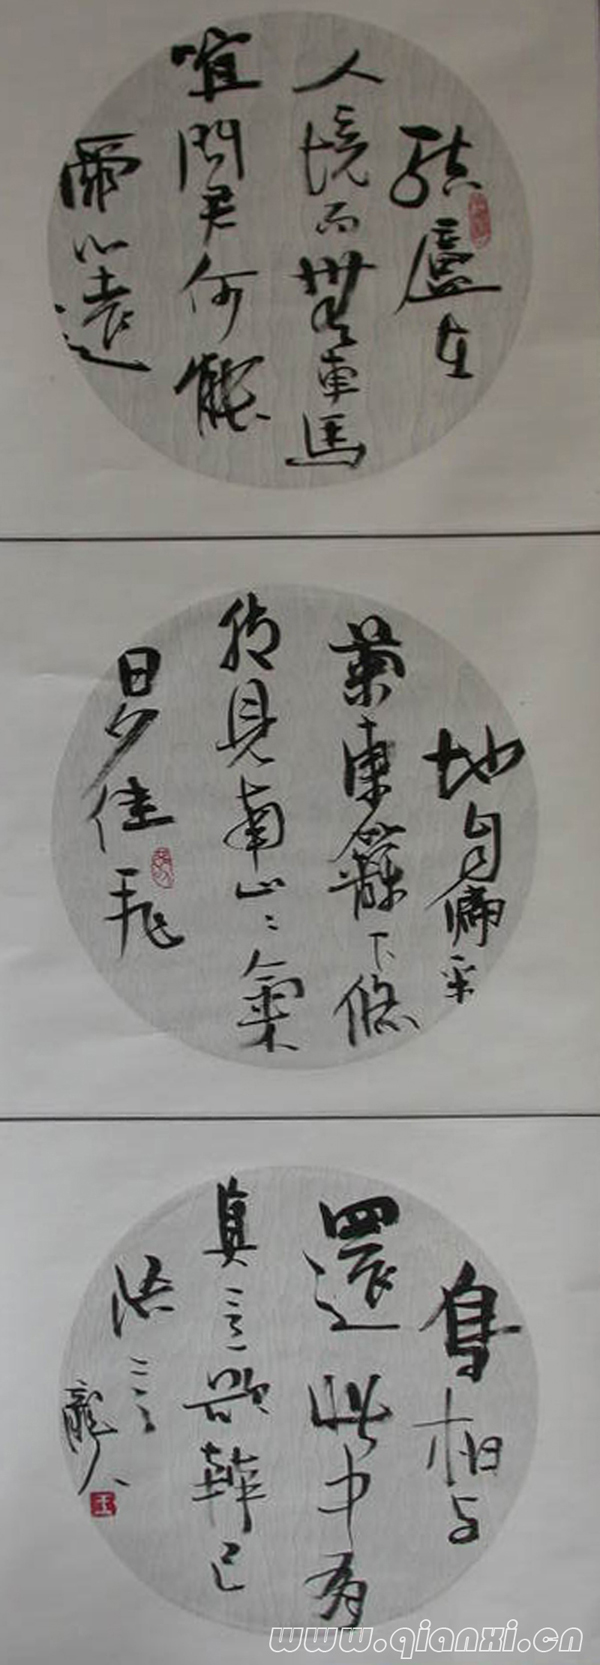 結廬在
人境而無車馬
喧問君何能
爾心遠
地自偏采
菊東籬下悠
然見南山〻氣
日夕佳飛
鳥相与
還此中有
真意欲辨已
忘言
龍人
王
www.qianxi.cn